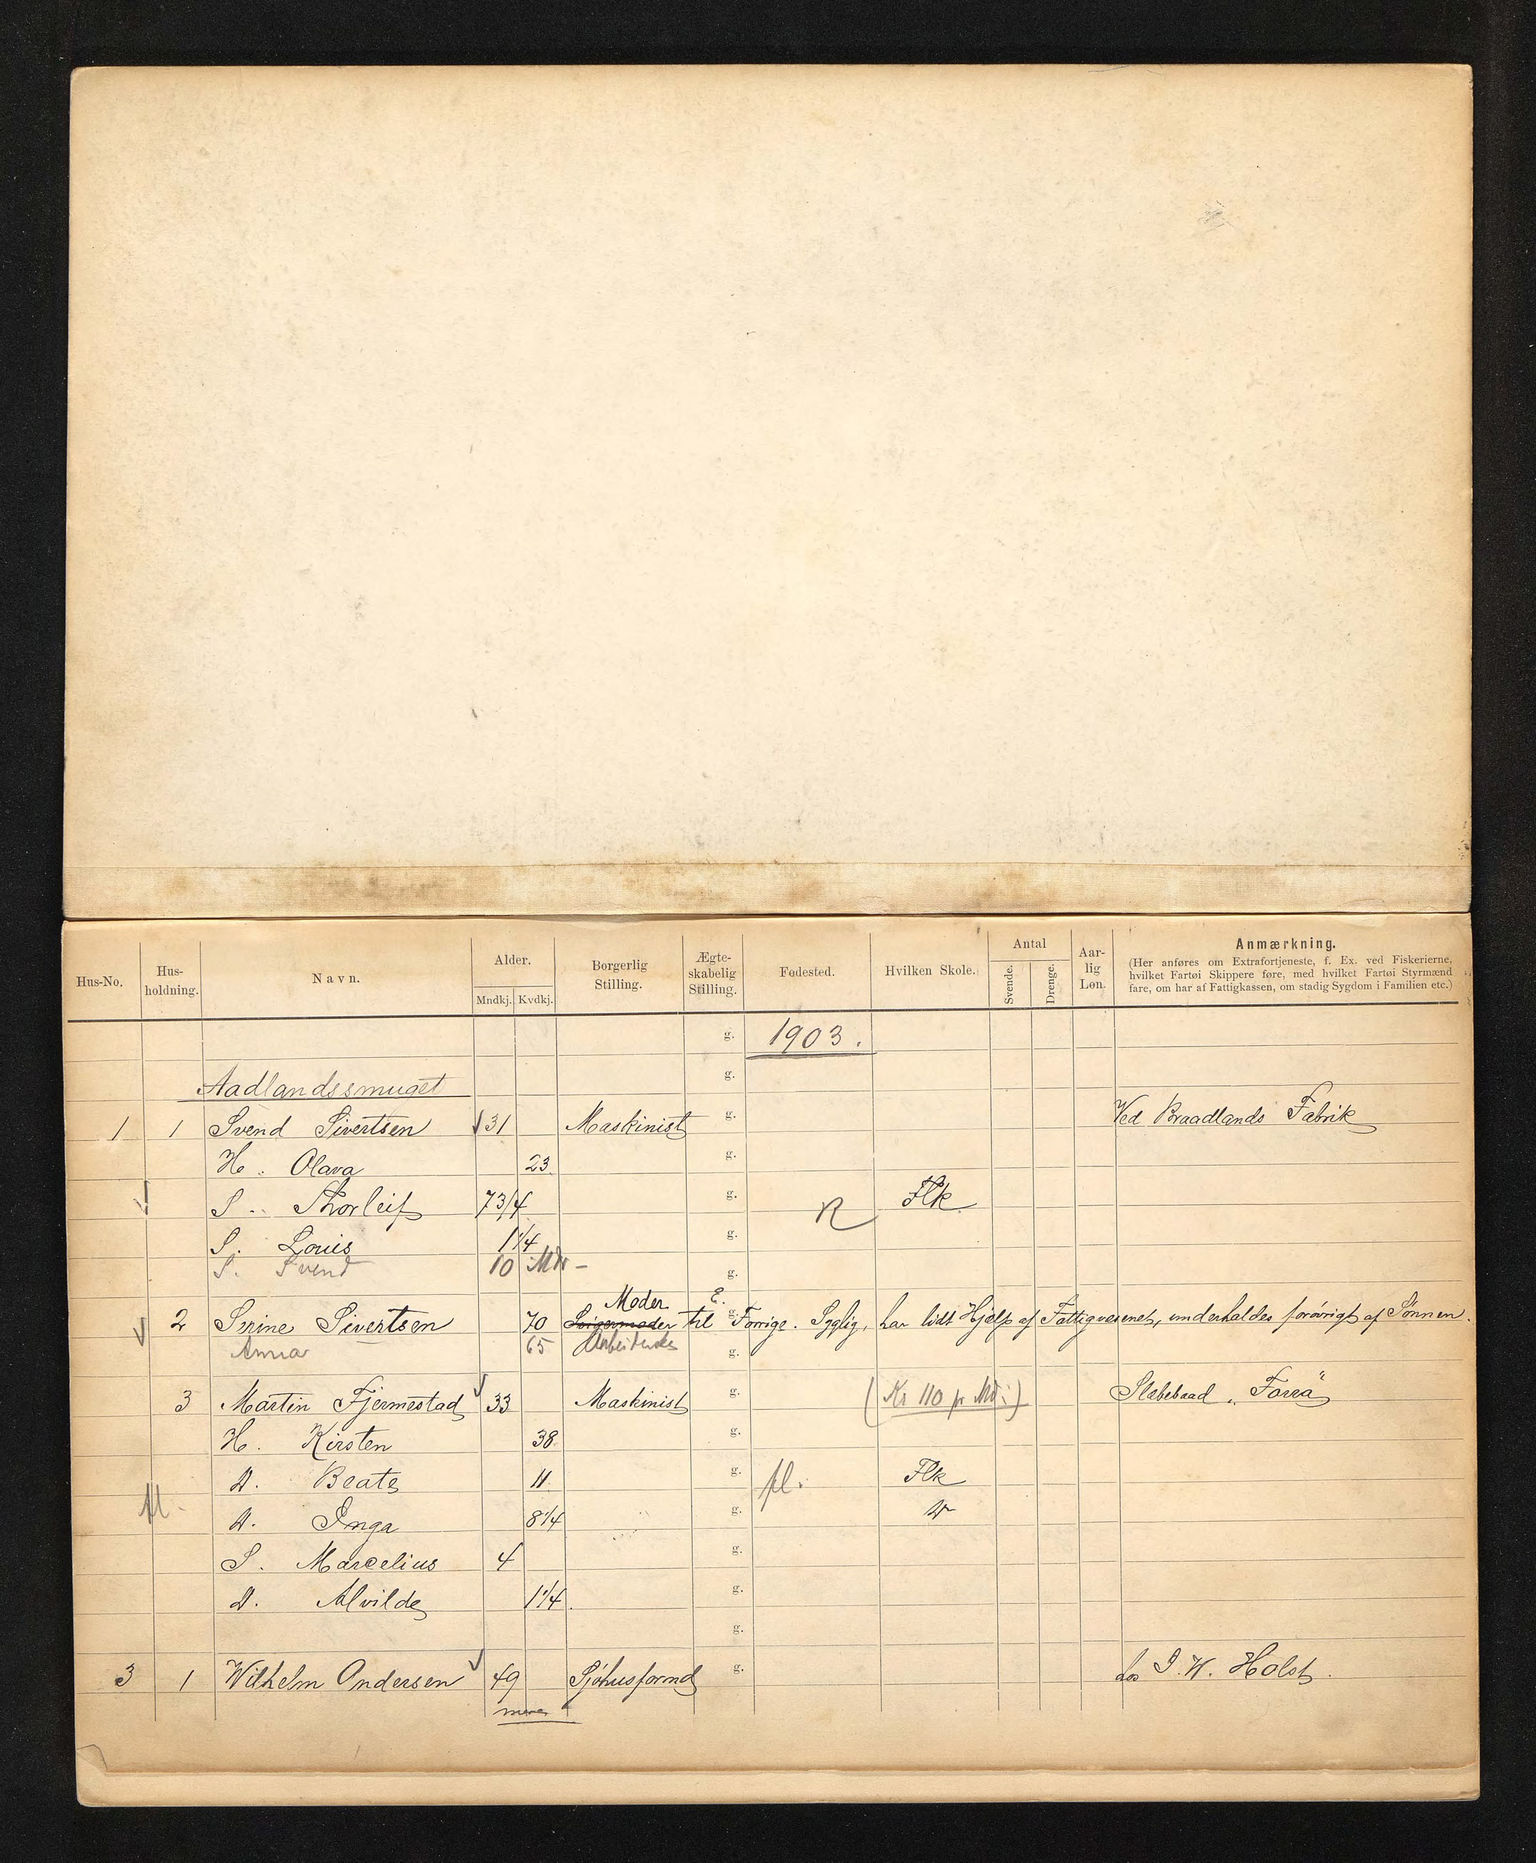 Hus-No. Hus-holdning. Navn. Alder. Mndkj. Kvdkj. Borgerlig Stilling. Ægte-skabelig Stilling. Fødested. Hvilken Skole. Antal Svende. Drenge. Aar-lig Løn. Anmærkning.
(Her anføres om Extrafortjeneste, f. Ex. ved Fiskerierne,
hvilket Fartøi Skippere føre, med hvilket Fartøi Styrmænd
fare, om har af Fattigkassen, om stadig Sygdom i Familien etc.)
g. 1903.
Aadlandssmuget g.
1 1 Svend Sivertsen 31 Maskinist g. Ved Braadlands Fabrik
H. Olava 23 g.
S. Thorleif 7 3/4 g. Flk
S. Louis 1 1/4 g.
S. Svend 10 Mdr - g.
Moder E.
2 Serine Sivertsen 70 Svigermoder til g. Forrige. Syglig, har lidt Hjælp af Fattigvæsenet, underholdes forøvrigt af Sønnen.
Anna 65 g.
3 Martin Fjermestad 33 Maskinist g. (Kr 110 pr Md.) Slæbebaad "Forra"
H. Kirsten 38 g.
D. Beate 11 g. fl. Flk
fl. D. Inga 8 1/4 g.
S. Marcelius 4 g.
D. Alvilde 1 1/4 g.
g.
3 1 Wilhelm Andersen 49 Sjøhusformd g. hos I. W. Holst.